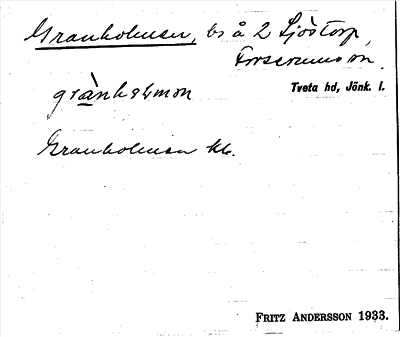 Granholmen, bs å 2 Sjöstorp,
Forserums sn.
Tveta hd, Jönk. l.
grànhɷlmɷn
Granholmen kk.
FRITZ ANDERSSON 1933.